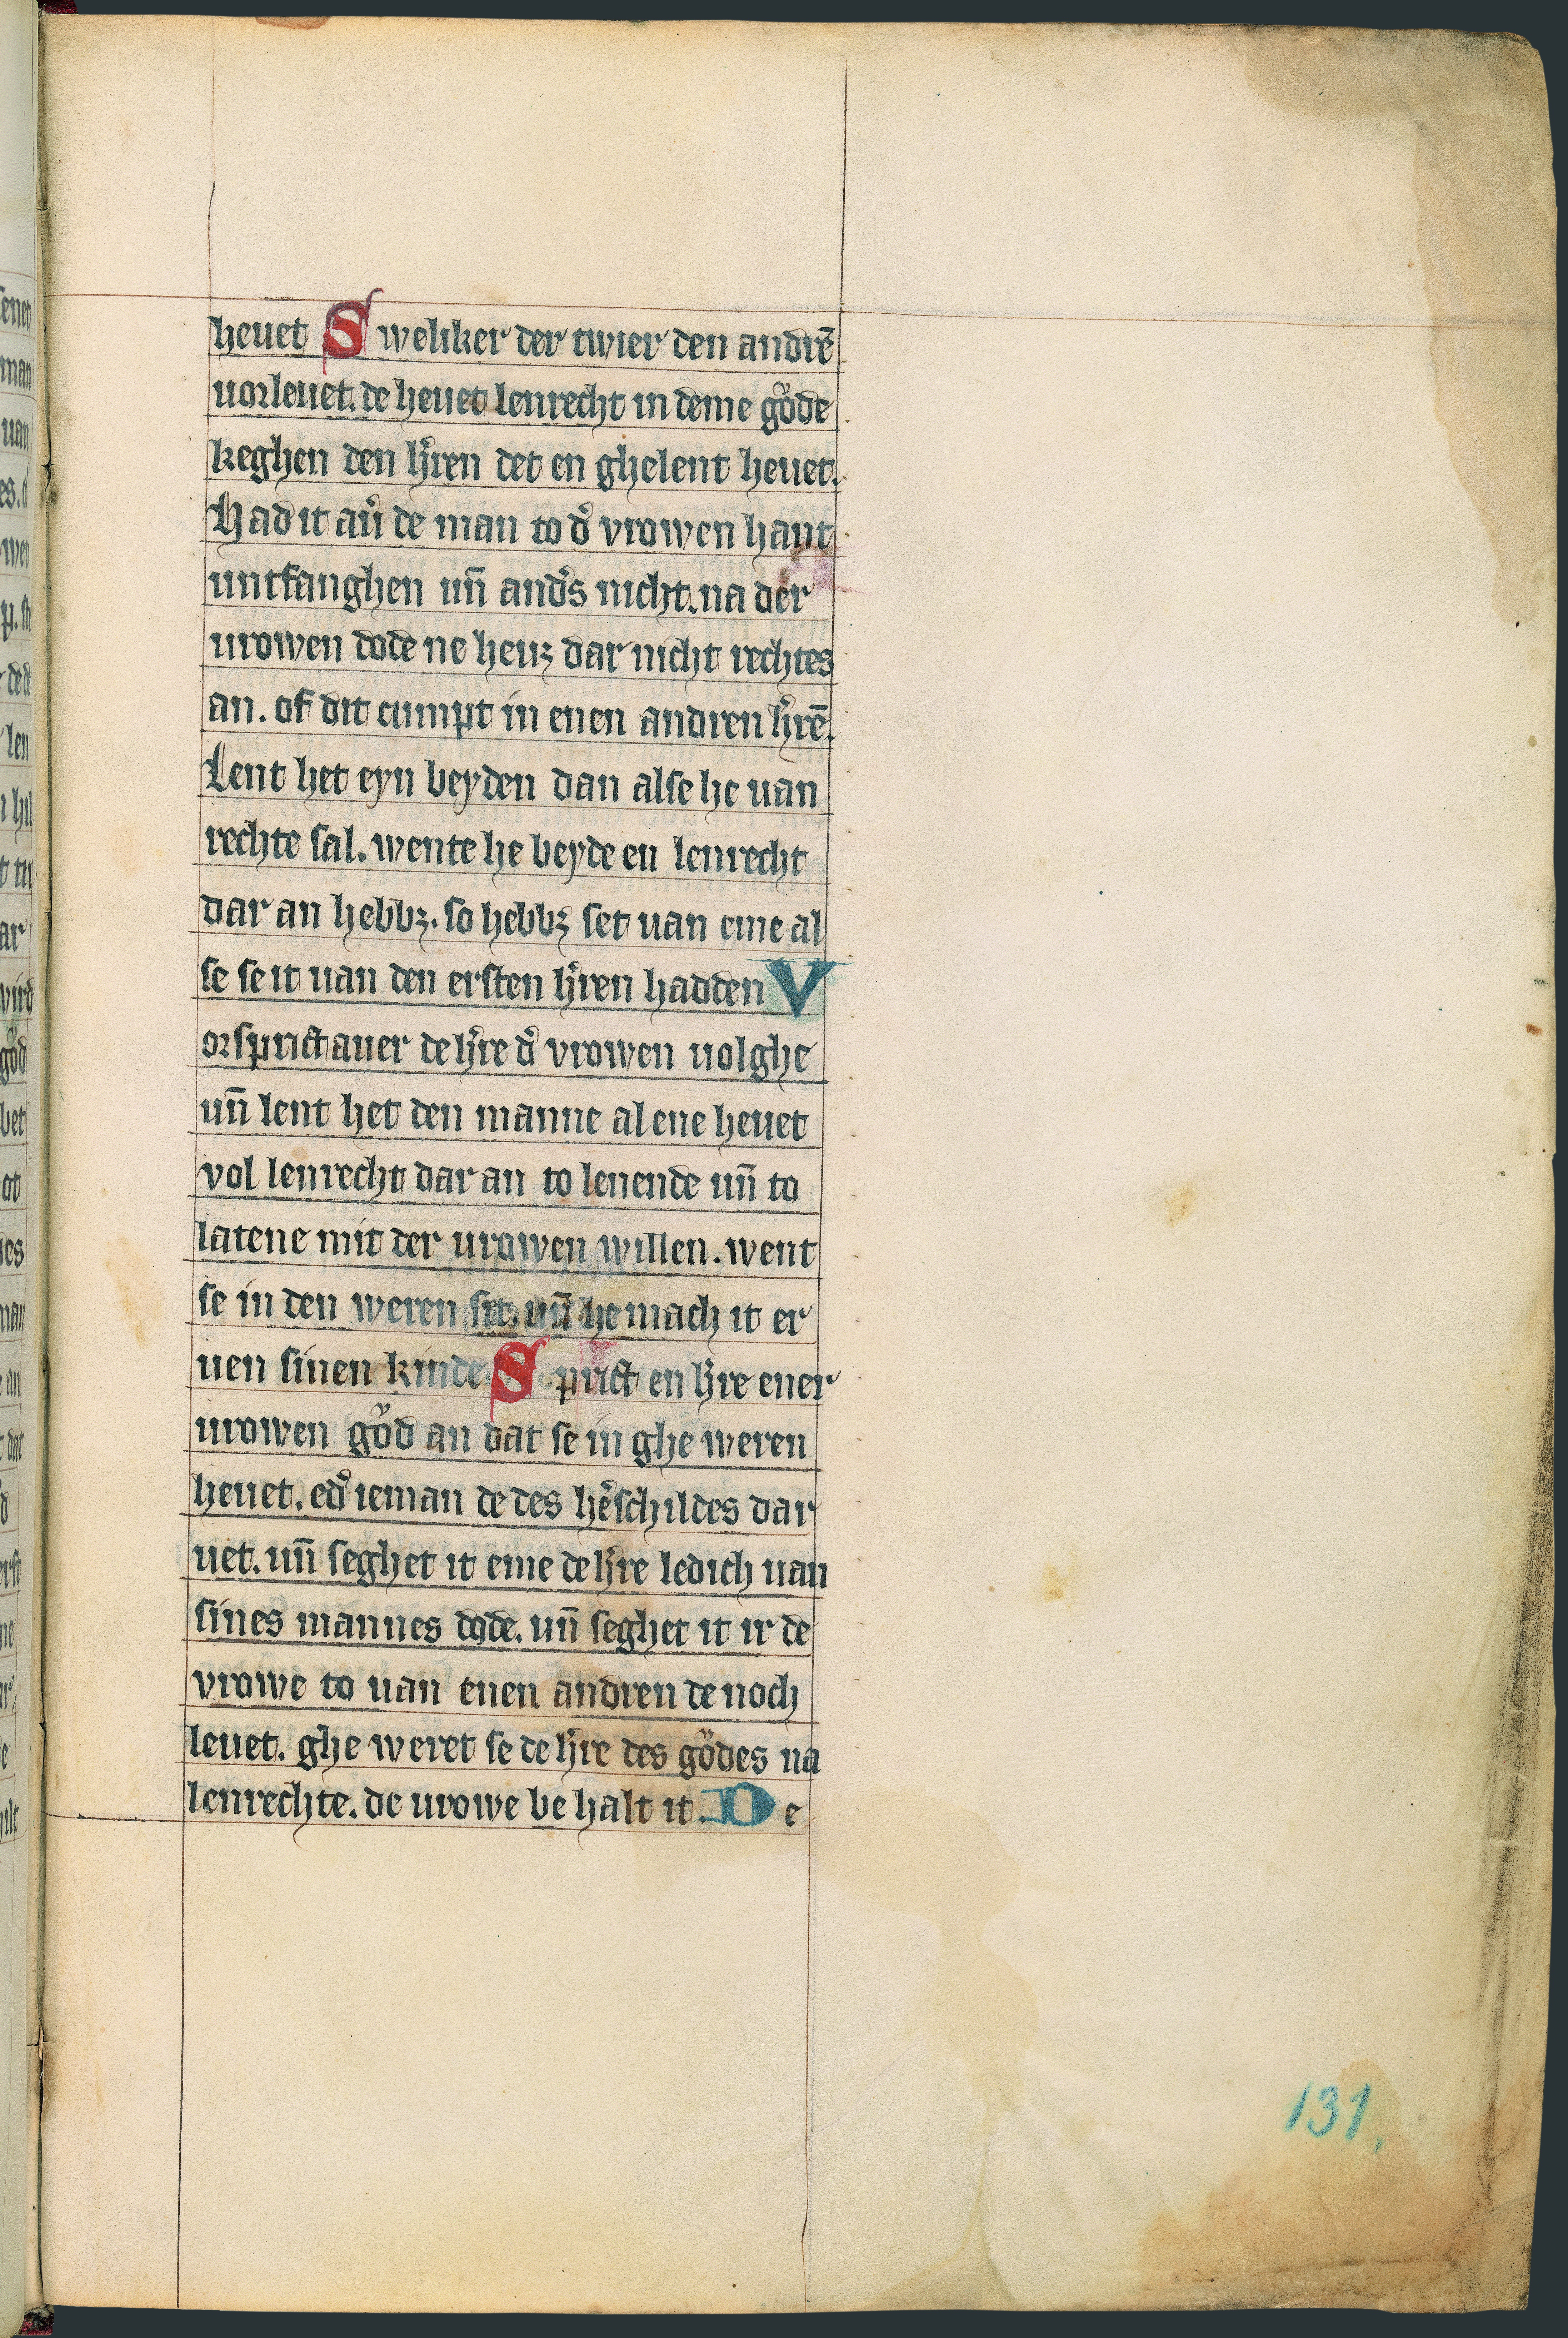 heuet Sweliker der twier den andrē
uorleuet. de heuet lenrecht in deme gͦode
keghen den hr̄en det en ghelent heuet.
Had it au̓ de man to d̓ vrowen hant
untfanghen un̄ and̓s nicht. na der
urowen dode ne heuꝫ dar nicht rechtes
an. of dit cumpt in enen andren hr̄ē.
Lent het eyn beyden dan alse he uan
rechte sal. wente he beyde en lenrecht
dar an hebbꝫ. so hebbꝫ set uan eme al
se se it uan den ersten hr̄en hadden V
orsprict auer de hr̄e d̓ vrowen uolghe
un̄ lent het den manne alene heuet
vol lenrecht dar an to lenende un̄ to
latene mit der urowen willen. went
se in den weren sit. un̄ he mach it er
uen sinen kinde Sprict en hr̄e ener
urowen gͦod an dat se in ghe weren
heuet. ed̓ ieman de des he̓schildes dar
uet. un̄ seghet it eme de hr̄e ledich uan
sines mannes dode. un̄ seghet it ir de
vrowe to uan enen andren de noch
leuet. ghe weret se de hr̄e des gͦodes na
lenrechte. de urowe be halt it. De
131.